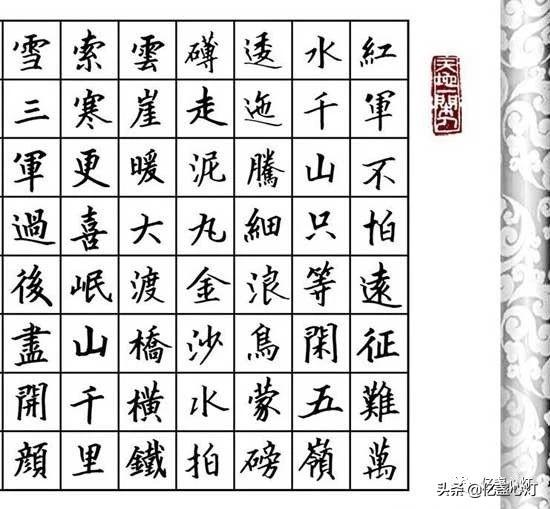 紅軍不怕遠征難萬
水千山只等閑五嶺
逶迤騰細浪烏蒙磅
礴走泥丸金沙水拍
雲崖暖大渡橋橫鐵
索寒更喜岷山千里
雪三軍過後盡開顏
头条 @亿盏心灯